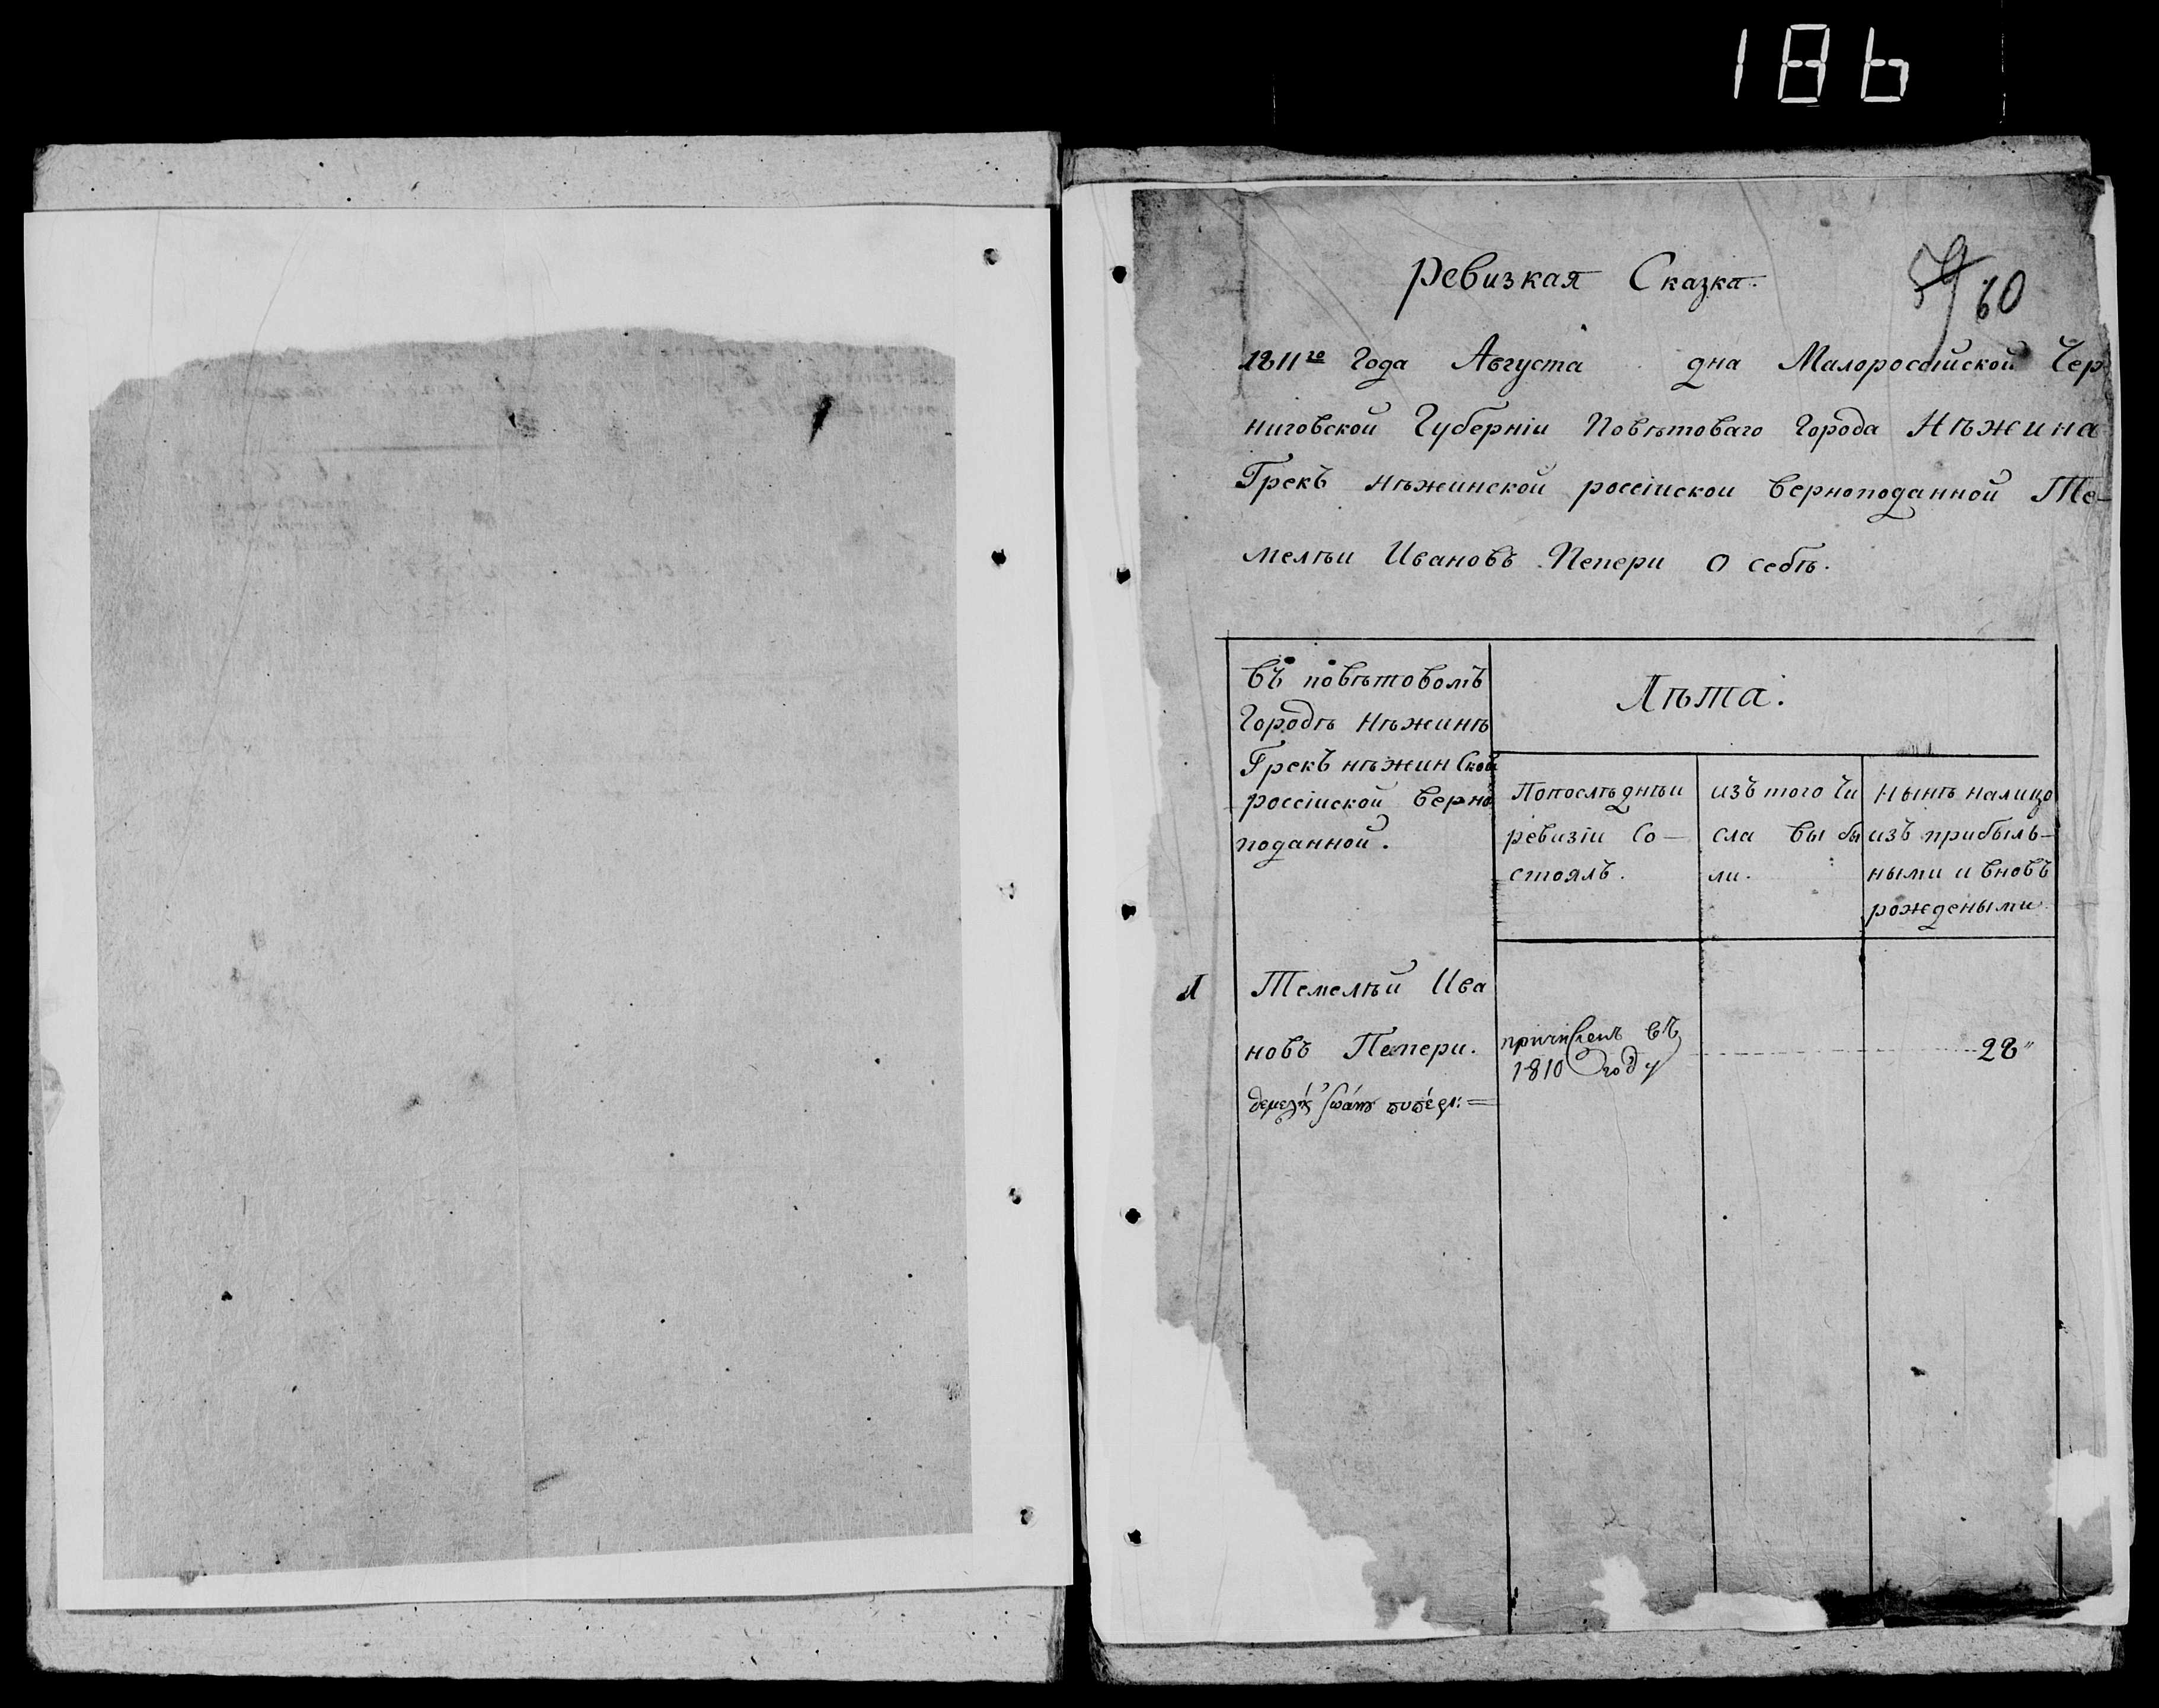 186
Ревизкая Сказка.
59 60
1811го Года Августа дна Малороссiйской Чер
ниговской Губернiи Повѣтоваго Города Нѣжина
Грекъ нѣжинской россiиской верноподанной Те-
мелѣи Ивановъ Пепери о себѣ.
Въ повѣтовомъ
Городѣ Нѣжинѣ
Грекъ нѣжинской
россiиской верно
поданной.
Лѣта.
Попослѣднѣи
ревизiи со-
стоялъ.
изъ того чи
сла выбы
ли.
Нынѣ налицо
изъ прибыль-
ными и вновъ
рождеными
1 Темелѣй Ива
новъ Пепери.
причисленъ въ
1810 году
28"
δεμελής